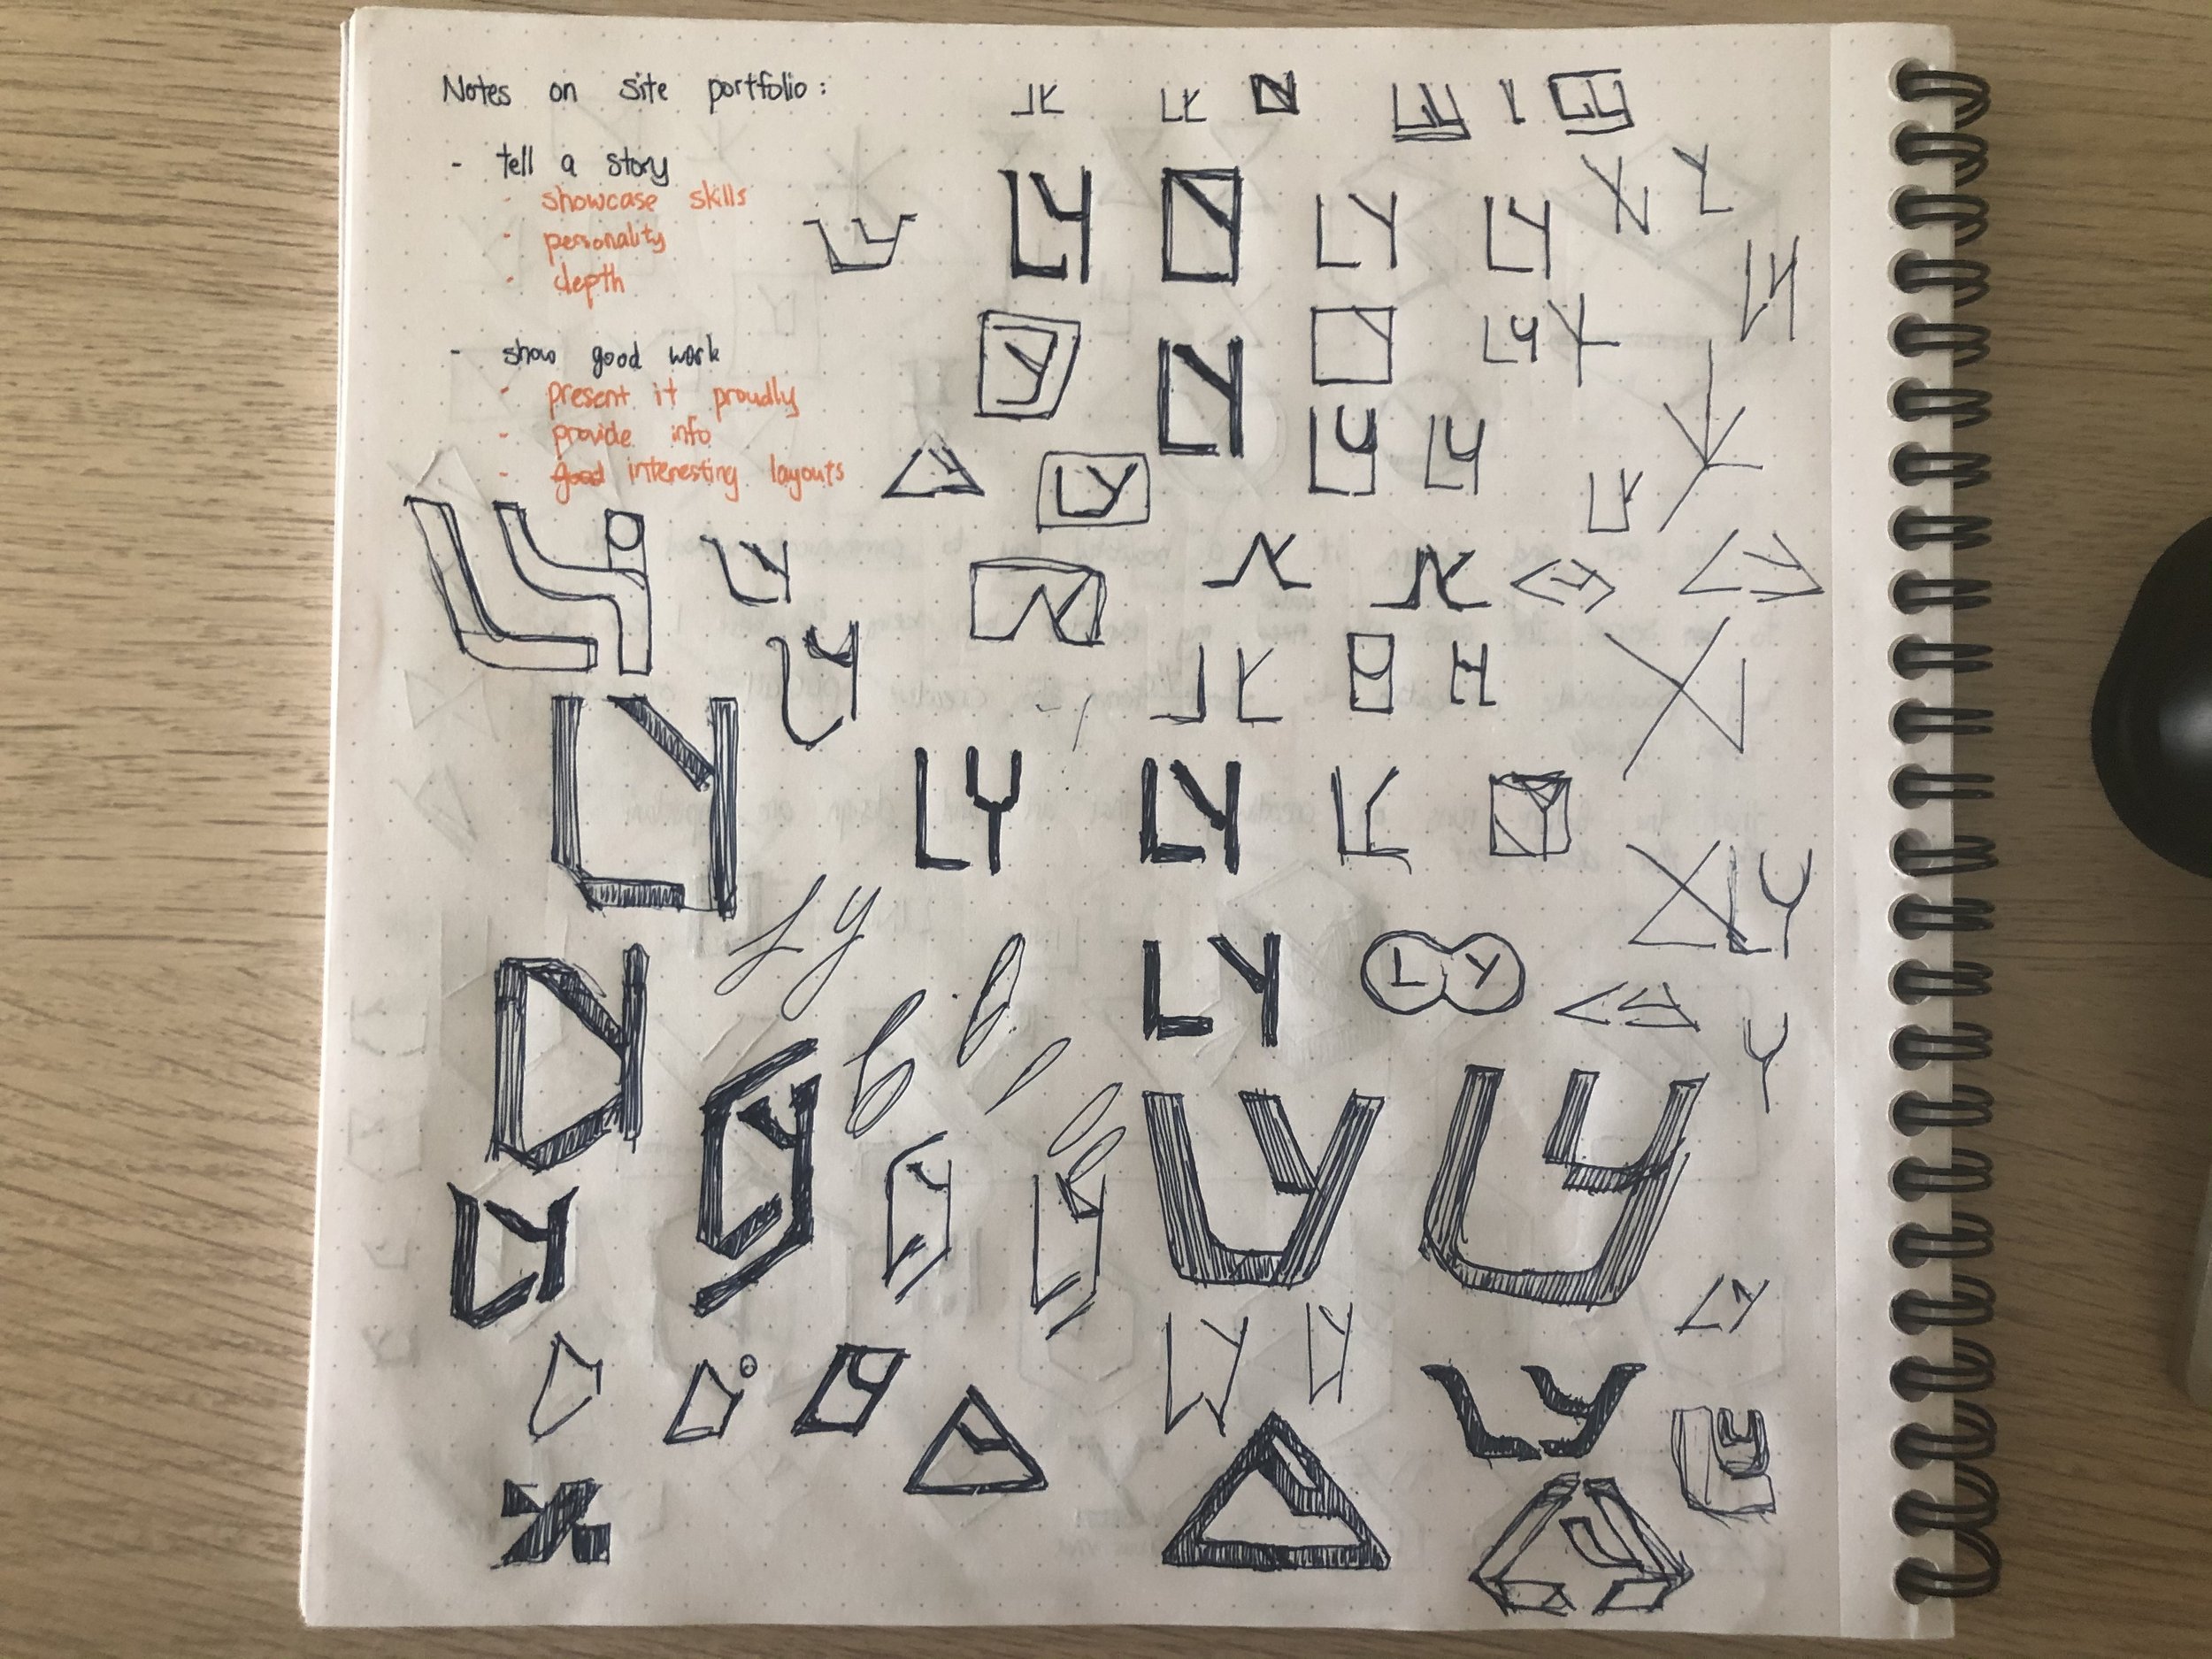 Notes on site portfolio:
- tell a story
- showcase skills
- personality
- depth
- show good work
- present it proudly
- provide info
- good interesting layouts
LY
LY
LY
LY
LY
LY
LY
LY
LY
LY
LY
L Y
LY
LY
LY
LY